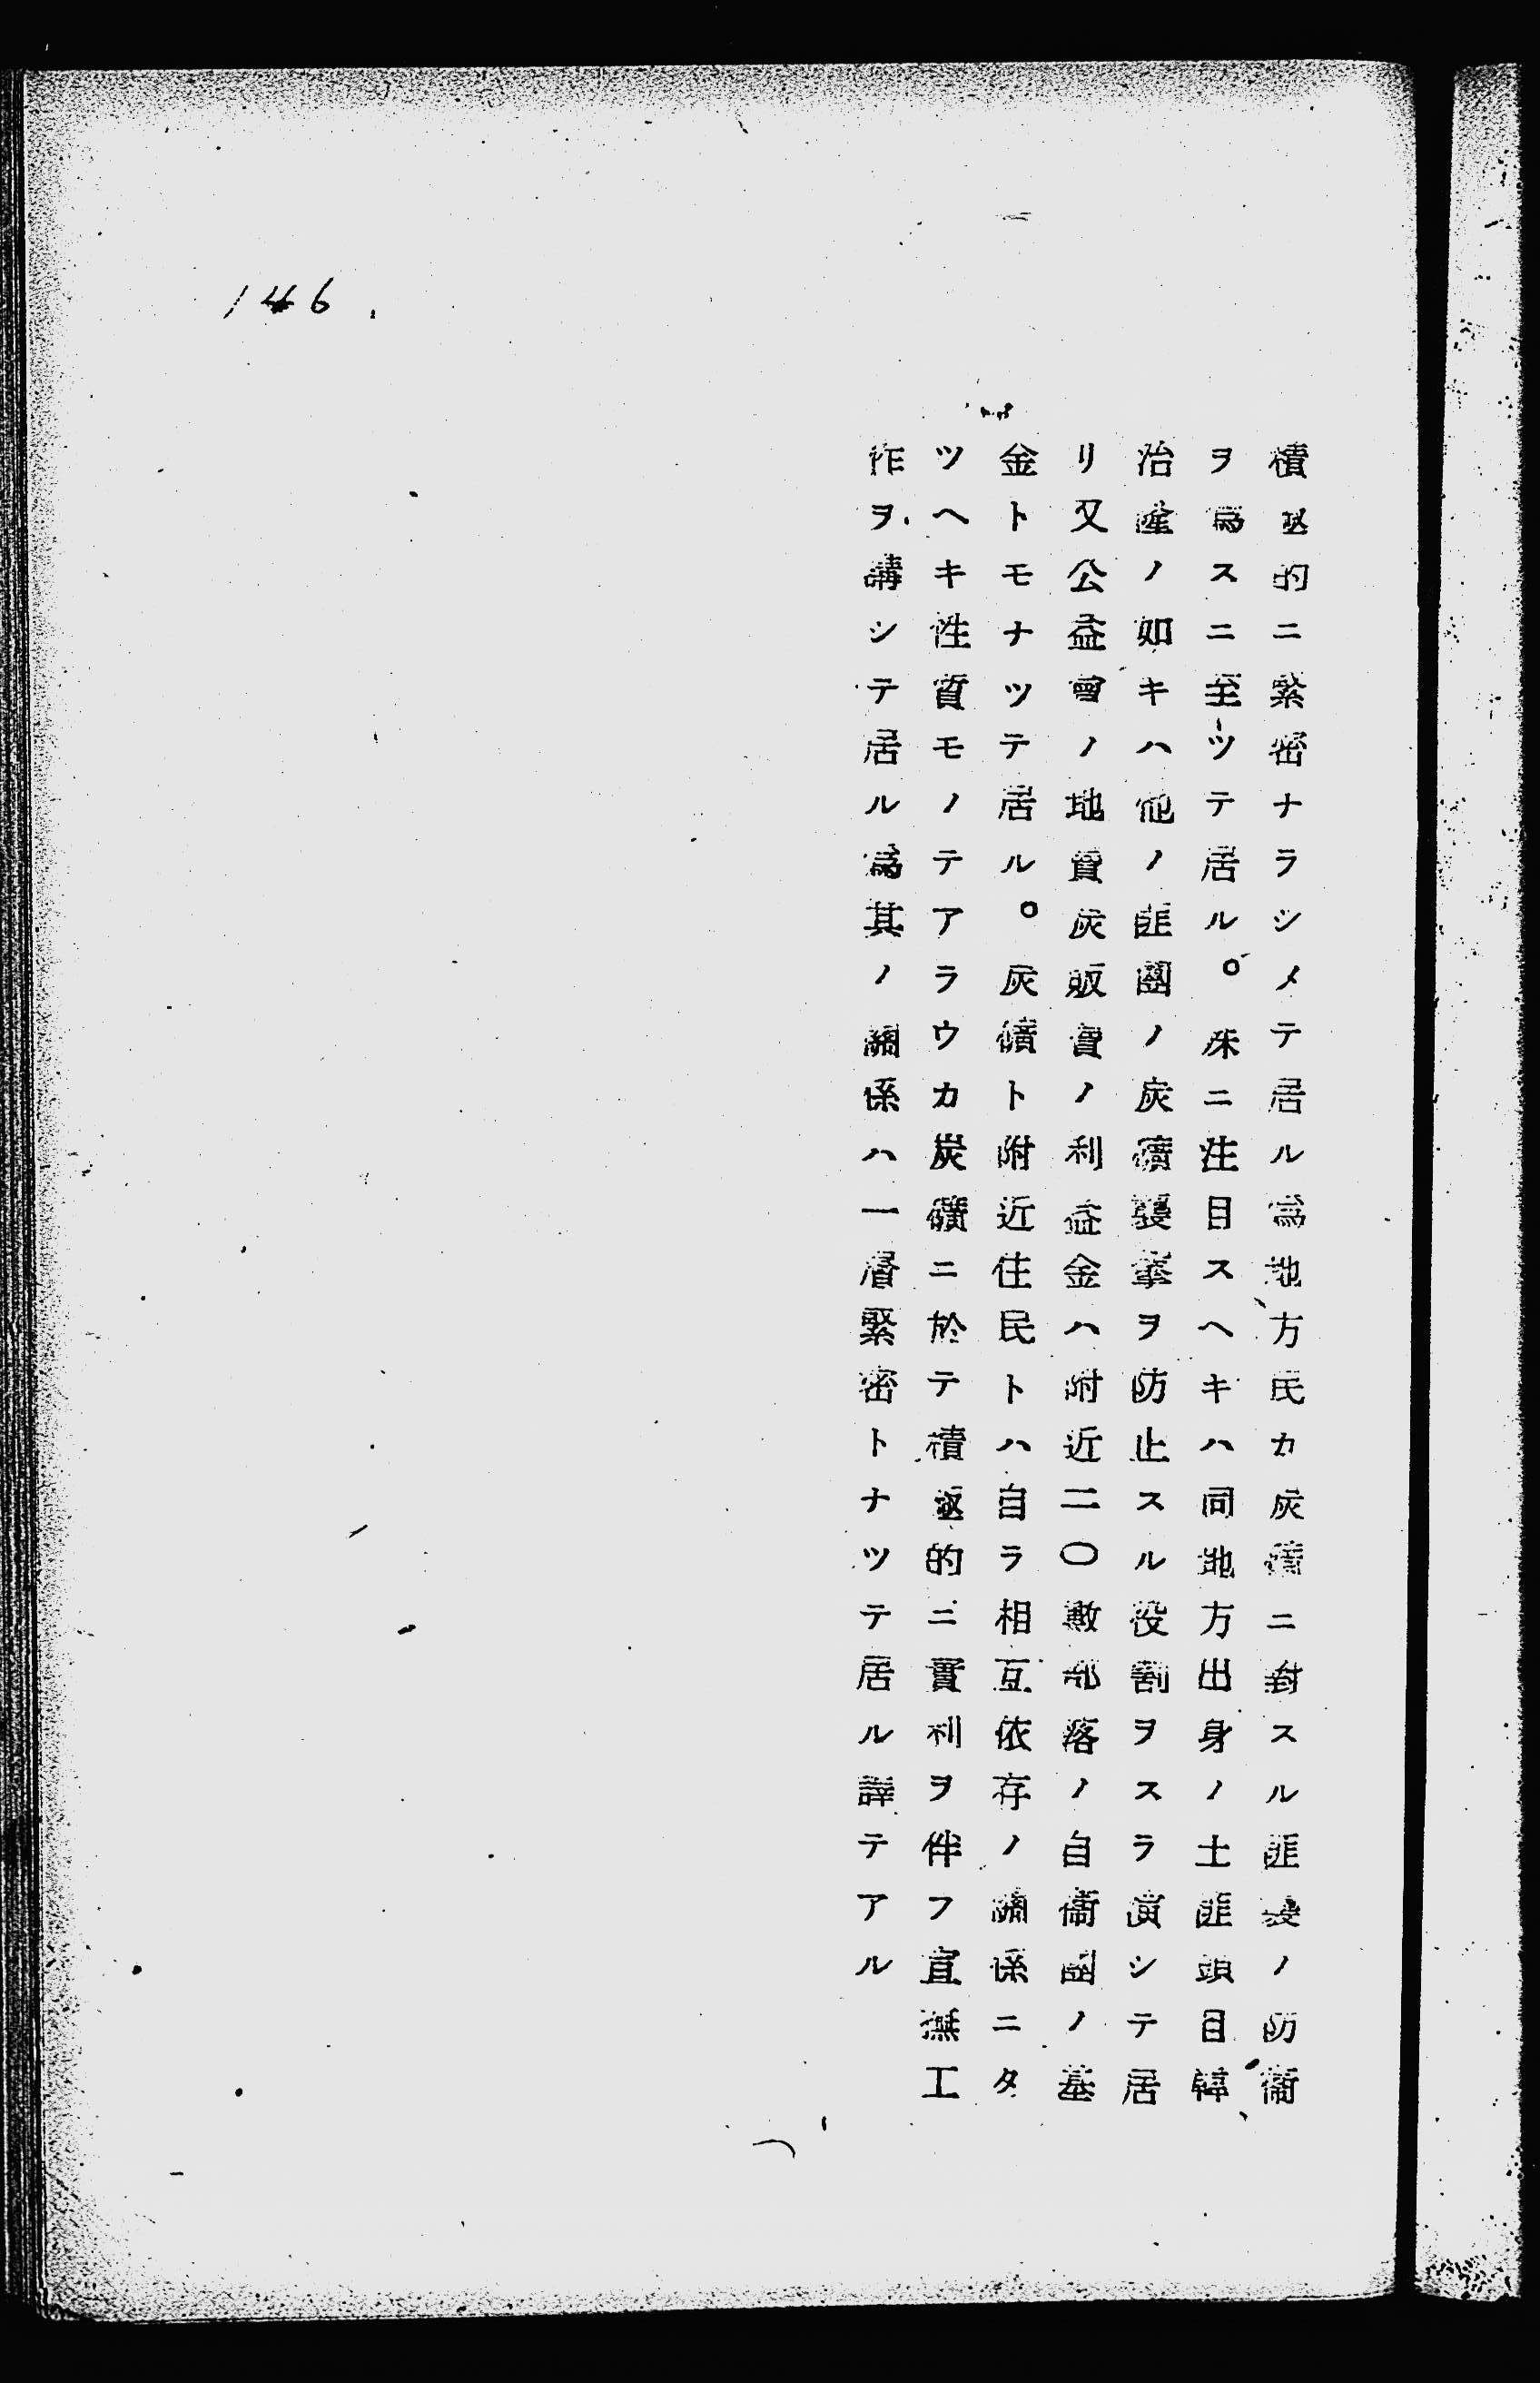 積亟的ニ緊密ナラシメテ居ル為地方民カ炭礦ニ對スル匪襲ノ防衞
ヲ為スニ至ツテ居ル。殊ニ注目スヘキハ同地方出身ノ土匪頭目韓
冶産ノ如キハ他ノ匪團ノ炭礦襲撃ヲ防止スル役割ヲスラ演シテ居
リ又公益會ノ地賣炭販賣ノ利益金ハ附近二〇數部落ノ自衞團ノ基
金トモナツテ居ル。炭礦ト附近住民トハ自ラ相互依存ノ關係ニタ
ツヘキ性質モノテアラウカ炭礦ニ於テ積亟的ニ實利ヲ伴フ宣撫工
作ヲ講シテ居ル為其ノ關係ハ一層緊密トナツテ居ル譯テアル
146.